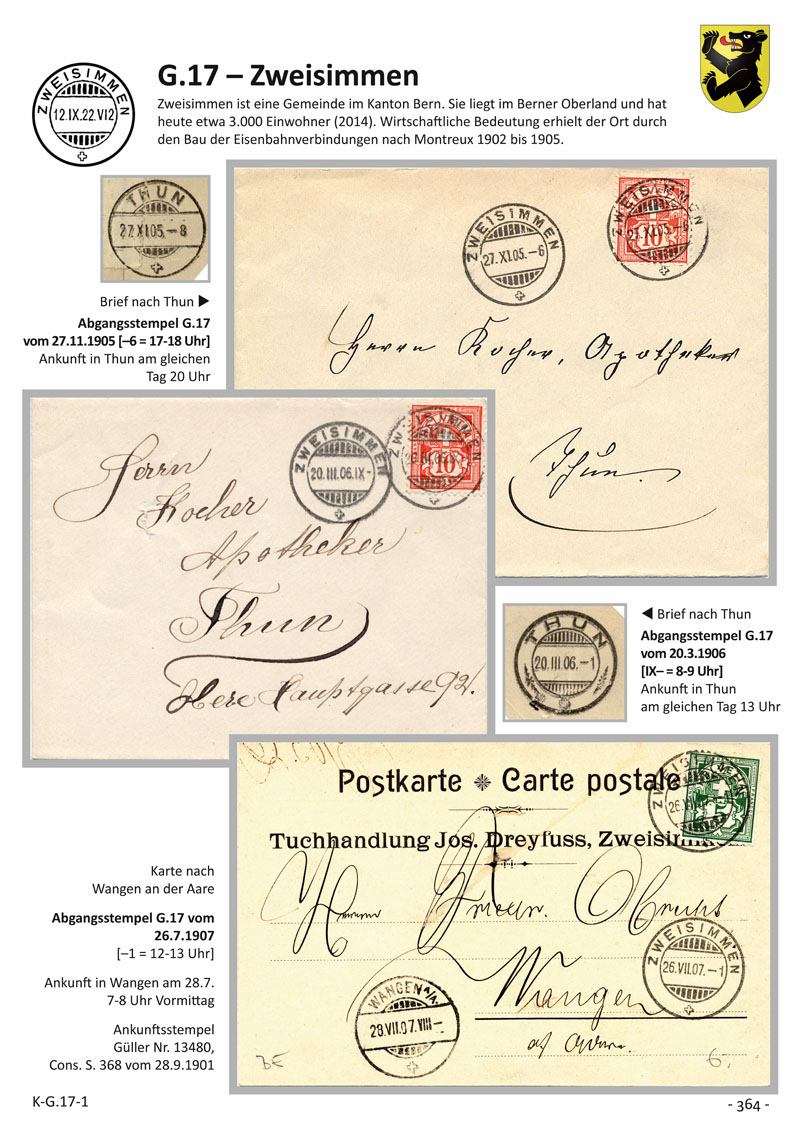 G.17 – Zweisimmen
ZWEISIMMEN
12.IX.22.VI2
Zweisimmen ist eine Gemeinde im Kanton Bern. Sie liegt im Berner Oberland und hat
heute etwa 3.000 Einwohner (2014). Wirtschaftliche Bedeutung erhielt der Ort durch
den Bau der Eisenbahnverbindungen nach Montreux 1902 bis 1905.
THUN
27.XI.05.–8
Brief nach Thun ▶
Abgangsstempel G.17
vom 27.11.1905 [–6 = 17-18 Uhr]
Ankunft in Thun am gleichen
Tag 20 Uhr
ZWEISIMMEN
27.XI.05.–6
ZWEISIMMEN
10
Herrn Kocher, Apotheker
Thun.
ZWEISIMMEN
20.III.06.IX–
ZWEISIMMEN
10
Herrn
Kocher
Apotheker
Thun
Hauptgasse 92.
THUN
20.III.06.–1
◀ Brief nach Thun
Abgangsstempel G.17
vom 20.3.1906
[IX– = 8-9 Uhr]
Ankunft in Thun
am gleichen Tag 13 Uhr
Postkarte ❈ Carte postale
Tuchhandlung Jos. Dreyfuss, Zweisimmen
ZWEISIMMEN
Herrn
Wangen
ZWEISIMMEN
26.VII.07.–1
WANGEN A/A.
28.VII.07.VIII–
BE
6.
Karte nach
Wangen an der Aare
Abgangsstempel G.17 vom
26.7.1907
[–1 = 12-13 Uhr]
Ankunft in Wangen am 28.7.
7-8 Uhr Vormittag
Ankunftsstempel
Güller Nr. 13480,
Cons. S. 368 vom 28.9.1901
K-G.17-1
- 364 -